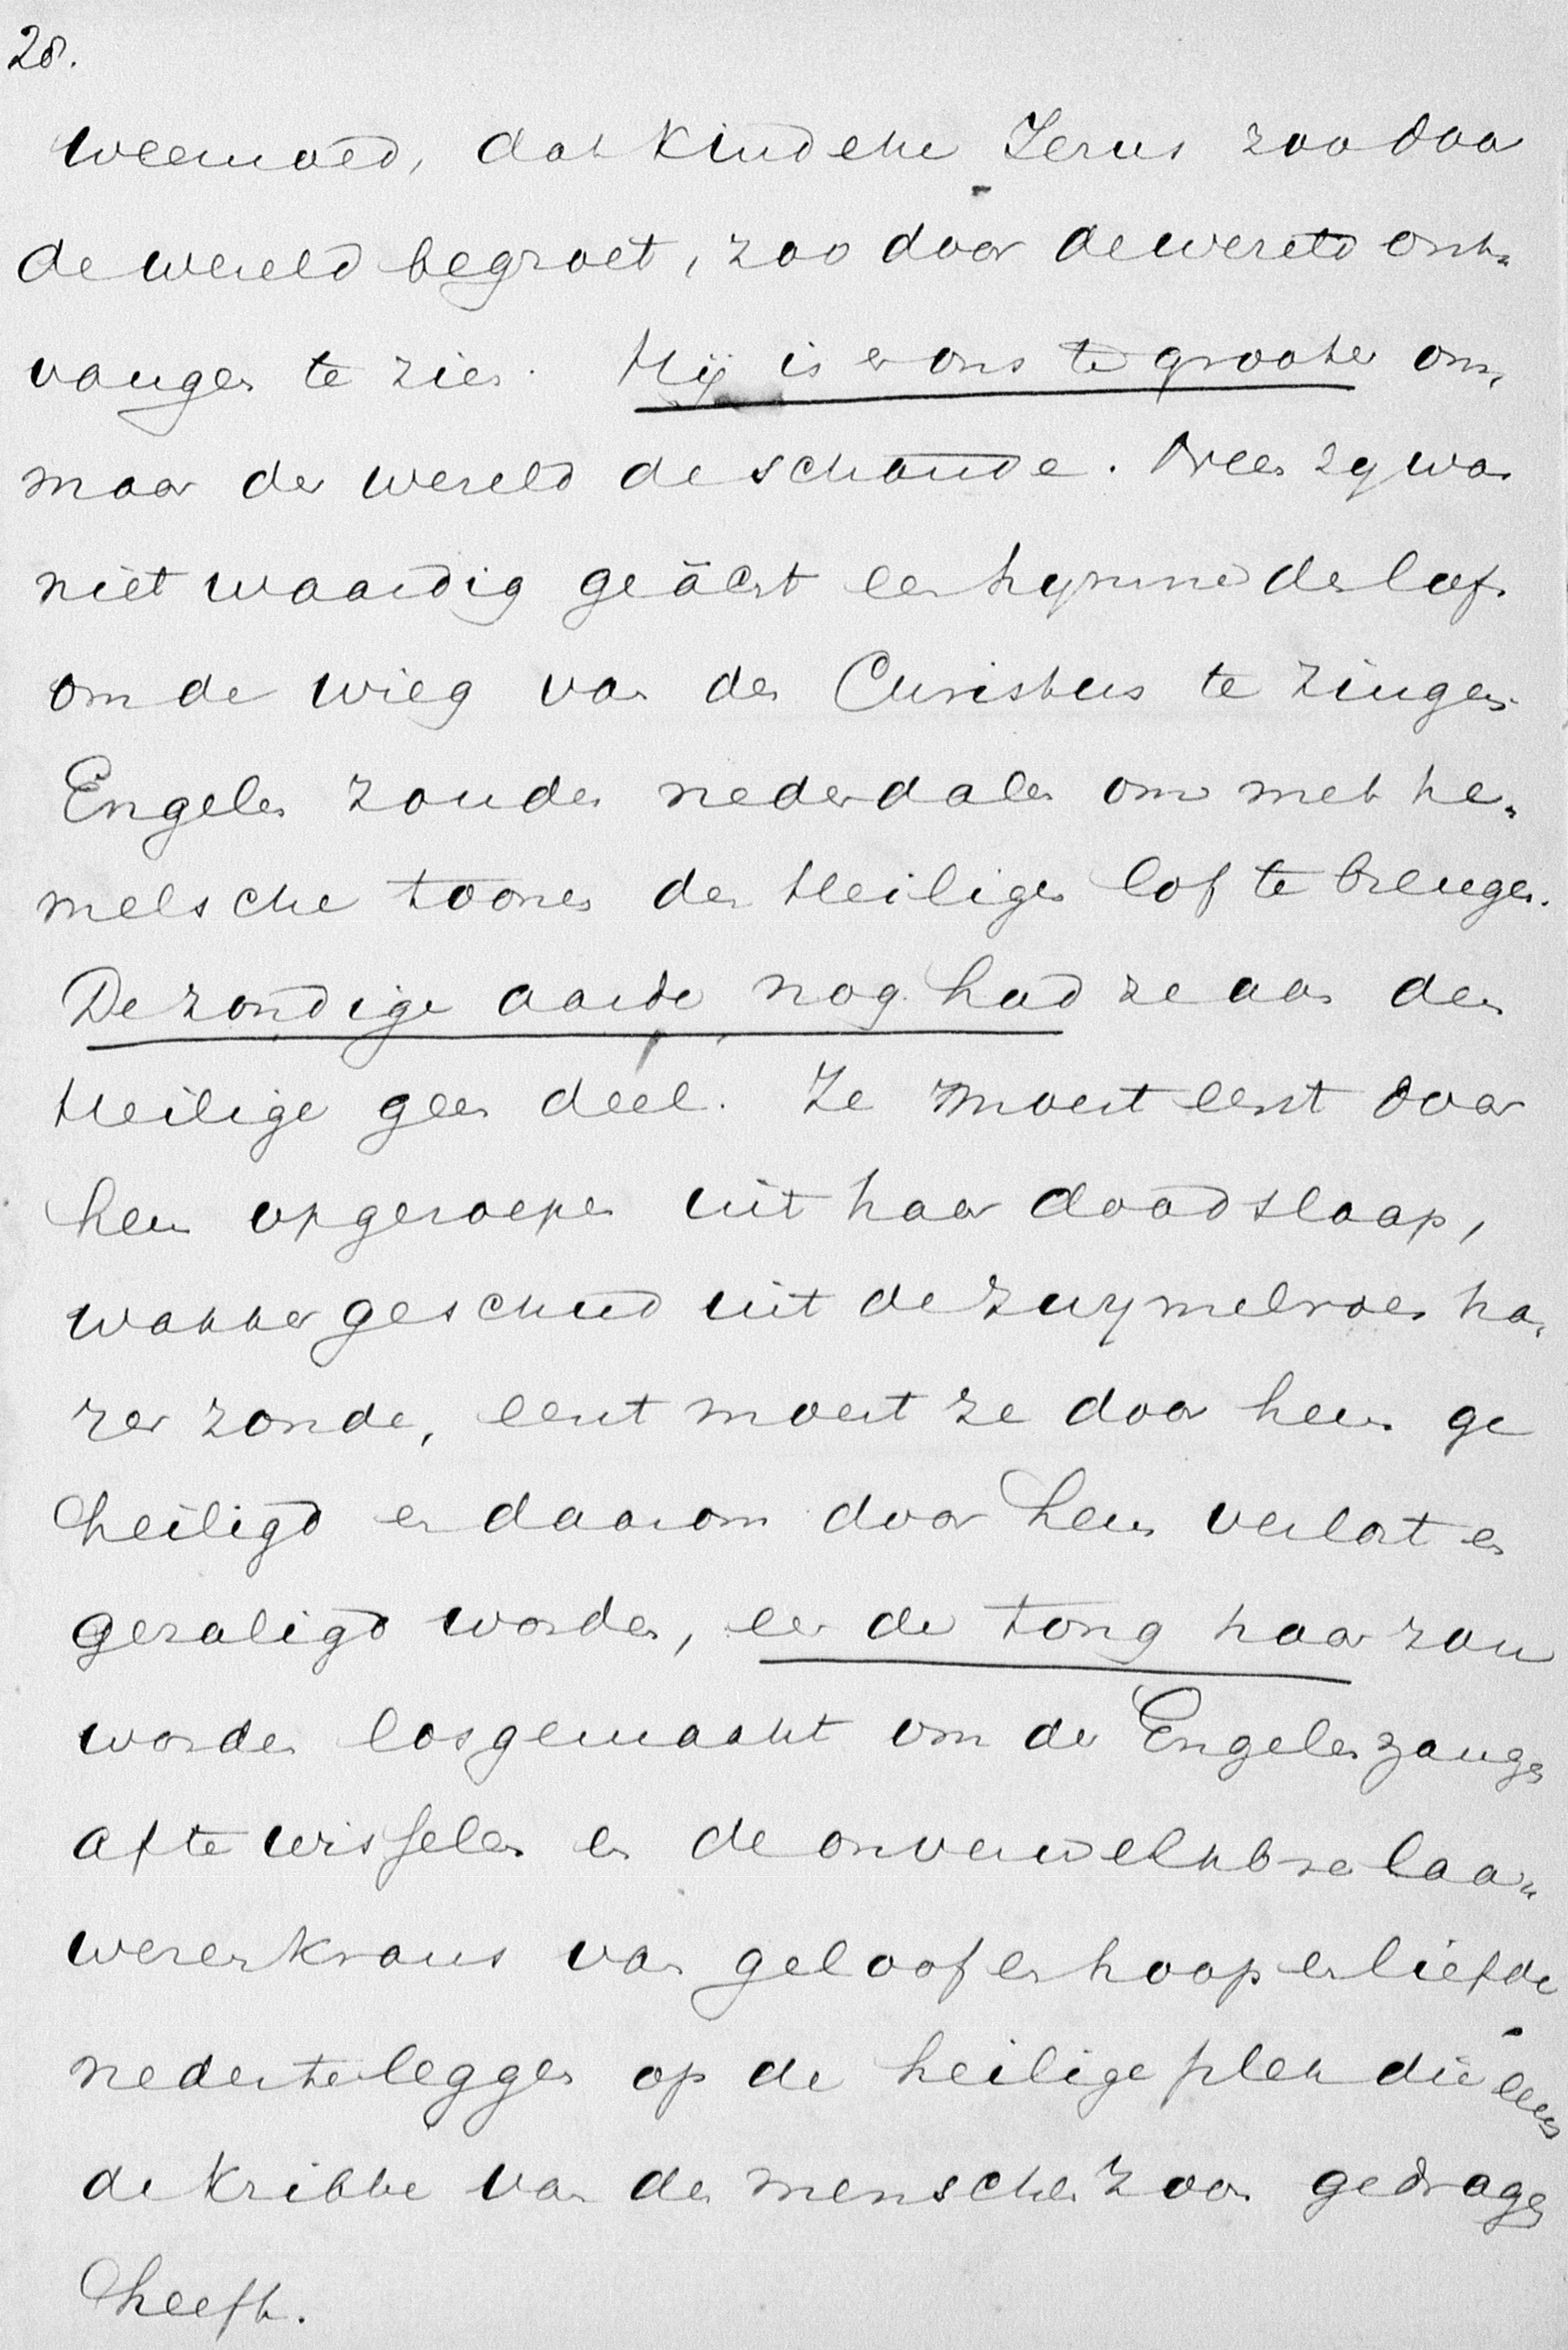 28.
weemoed, dat kindeke Jezus zoo door
de wereld begroet, zoo door de wereld ont-
vangen te zien. Hij is er ons te grooter om,
maar der wereld de schande. Neen zij was
niet waardig geächt een hymne des lofs
om de wieg van den Christus te zingen.
Engelen zouden nederdalen om met he-
melsche toonen den Heiligen lof te brengen.
De zondige aarde nog had ze aan den
Heilige geen deel. Ze moest eerst door
hem opgeroepen uit haar doodslaap,
wakker geschud uit de zwymelroes ha-
rer zonde, eerst moest ze door hem ge
heiligd en daarom door hem verlost en
gezaligd worden, eer de tong haar zou
worden losgemaakt om den Engelenzang
af te wisselen en de onverwelkbre laau-
werenkrans van geloof en hoop en liefde
neder te leggen op de heilige plek die eens
de kribbe van den menschenzoon gedragen
heeft.